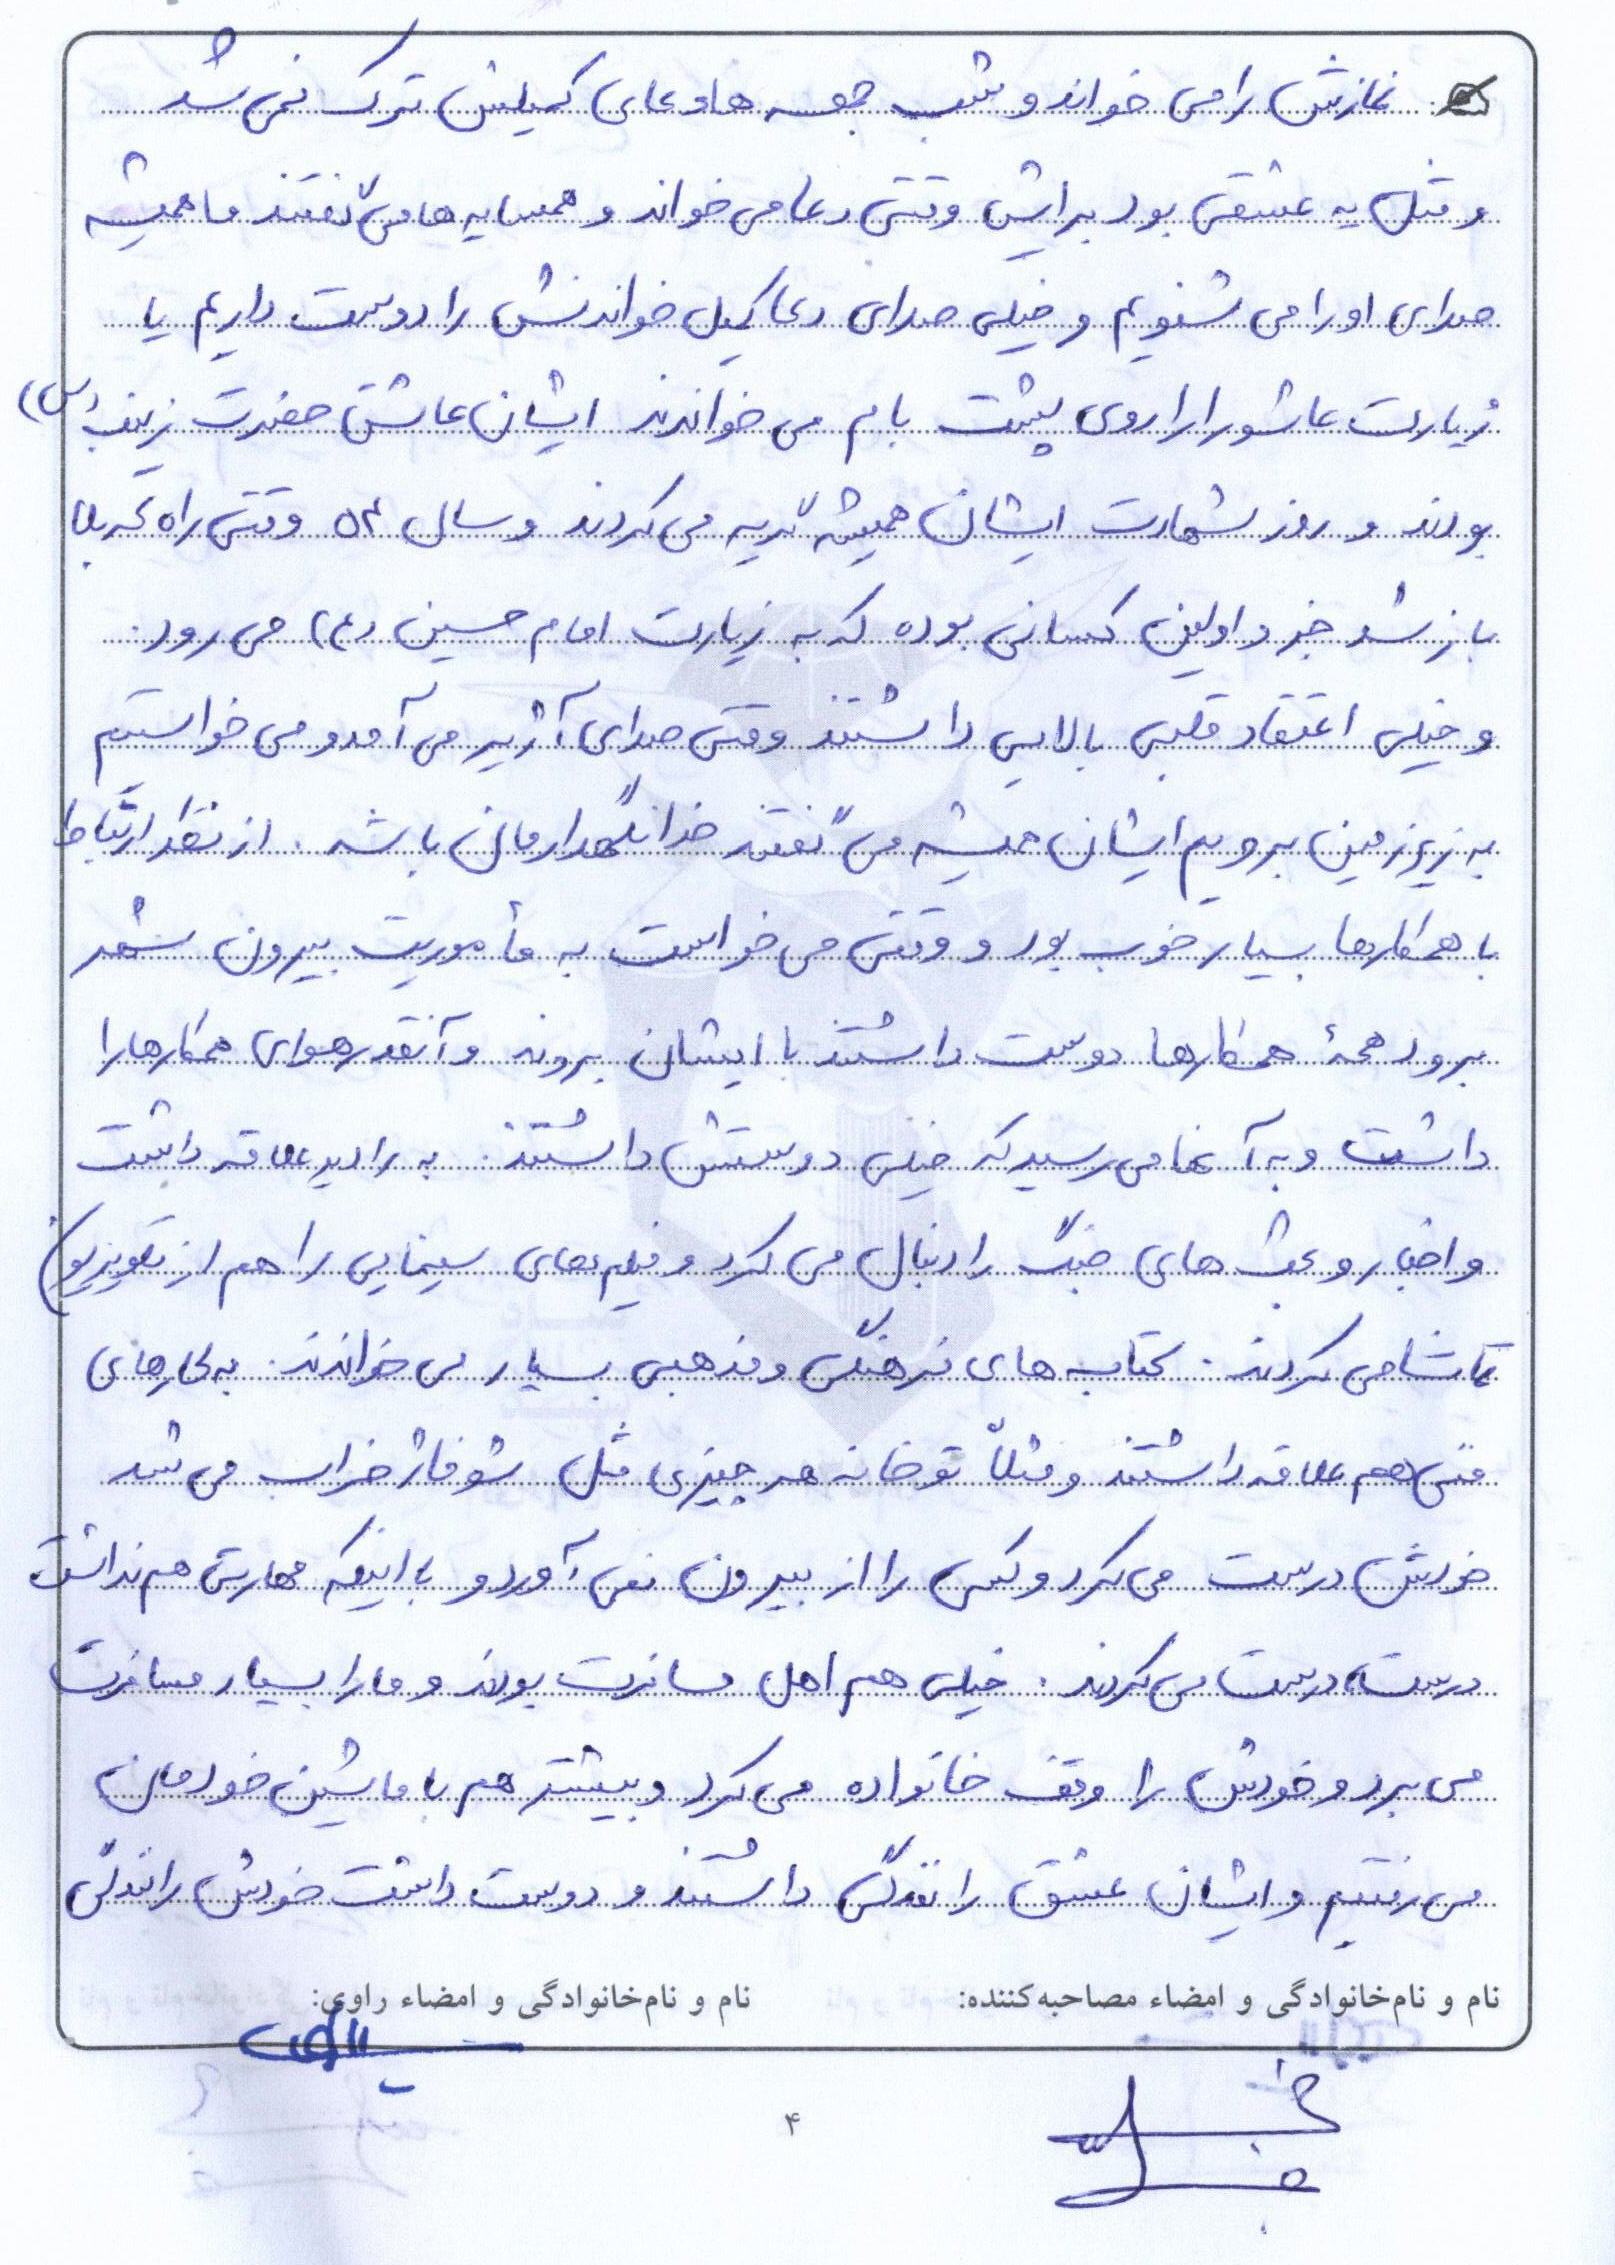 نمازش را می خواند و شب جمعه ها دعای کمیلش ترک نمی شد
و مثل یه عشقی بود برایش وقتی دعا می خواند و همسایه ها می گفتند ما همیشه
صدای او را می شنویم و خیلی صدای دعا کمیل خواندنش را دوست داریم یا
زیارت عاشورا را روی پشت بام می خواندند ایشان عاشق حضرت زینب (س)
بودند و روز شهادت ایشان همیشه گریه می کردند و سال ۵۴ وقتی راه کربلا
باز شد جزو اولین کسانی بوده که به زیارت امام حسین (ع) می رود.
و خیلی اعتقاد قلبی بالایی داشتند وقتی صدای آژیر می آمد و می خواستیم
به زیرزمین برویم ایشان همیشه می گفتند خدا نگهدارمان باشه. از نظر ارتباط
با همکارها بسیار خوب بود و وقتی می خواست به مأموریت بیرون شهر
برود همۀ همکارها دوست داشتند با ایشان بروند و آنقدر هوای همکارها را
داشت و به آنها می رسید که خیلی دوستش داشتند. به رادیو علاقه داشت
و اخبار و بحث های جنگ را دنبال می کرد و فیلم های سینمایی را هم از تلویزیون
تماشا می کردند. کتاب های فرهنگی و مذهبی بسیار می خواندند. به کارهای
فنی هم علاقه داشتند و مثلاً تو خانه هر چیزی مثل شوفاژ خراب می شد
خودش درست می کرد و کسی را از بیرون نمی آورد و با اینکه مهارتی هم نداشت
درست، درست می کردند. خیلی هم اهل مسافرت بودند و ما را بسیار مسافرت
می برد و خودش را وقف خانواده می کرد و بیشتر هم با ماشین خودمان
می رفتیم و ایشان عشق رانندگی داشتند و دوست داشت خودش رانندگی
نام و نام‌خانوادگی و امضاء مصاحبه‌کننده: نام و نام‌خانوادگی و امضاء راوی:
۴